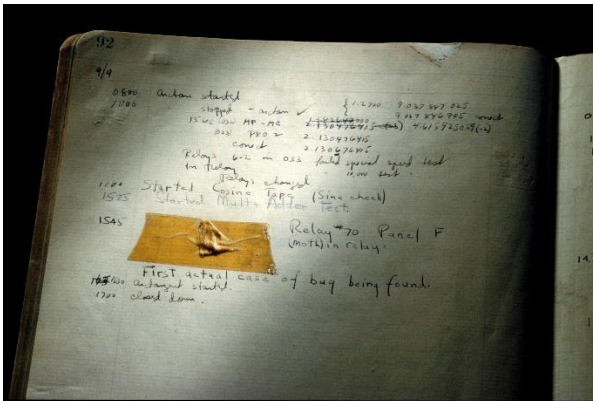 92
9/9
0800 Antan started
1000 stopped - antan ✓ { 1.2700 9.037 847 025
9.037 846 995 correct
13"UC (032) MP-MC 4.615925059(-2)
(033) PRO 2 2.130476415
correct 2.130676415
Relays 6-2 in 033 failed special speed test
in relay test.
Relays changed
1100 Started Cosine Tape (Sine check)
1525 Started Multi Adder Test.
1545 Relay #70 Panel F
(Moth) in relay.
First actual case of bug being found.
antangent started.
1700 closed down.